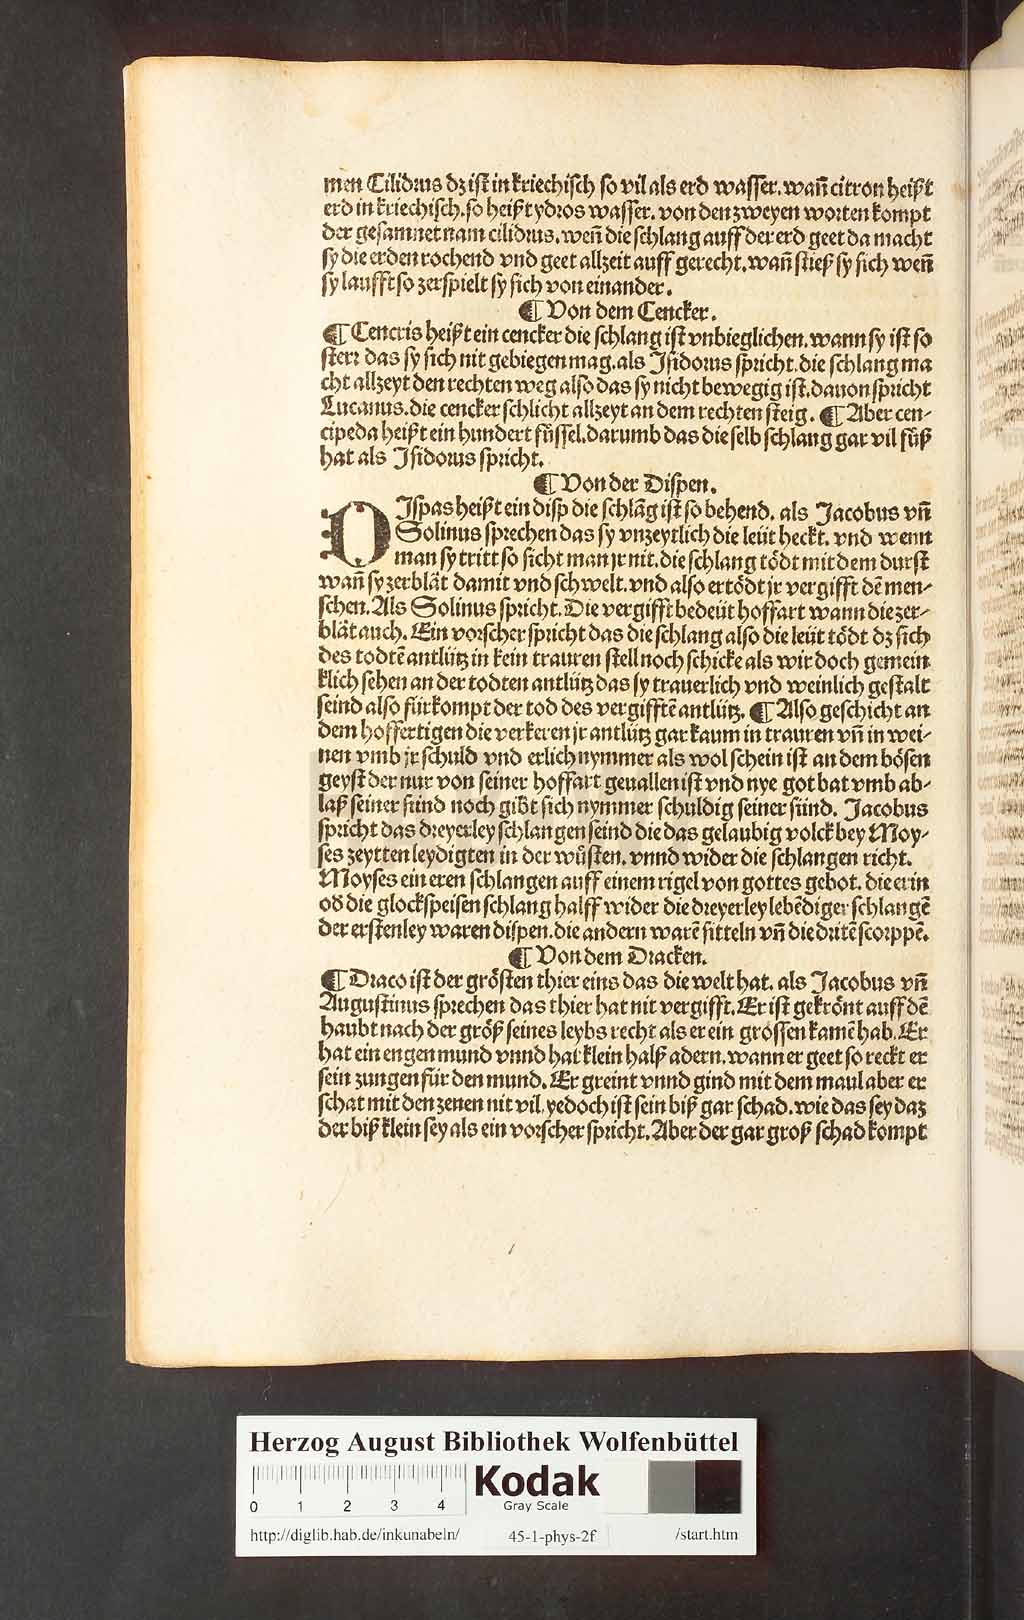 men Cilidrus dz ist in kriechisch so vil als erd wasser. wañ citron heißt
erd in kriechisch. so heißt ydros wasser. von den zweyen worten kompt
der gesamnet nam cilidrus. weñ die schlang auff der erd geet da macht
sy die erden rochend vnd geet allzeit auff gerecht. wañ stieß sy sich weñ
sy laufft so zerspielt sy sich von einander.
¶ Von dem Cencker.
¶ Cencris heißt ein cencker die schlang ist vnbieglichen. wann sy ist so
sterr das sy sich nit gebiegen mag. als Isidorus spricht. die schlang ma
cht allzeyt den rechten weg also das sy nicht bewegig ist. dauon spricht
Lucanus. die cencker schlicht allzeyt an dem rechten steig. ¶ Aber cen-
cipeda heißt ein hundert füssel. darumb das die selb schlang gar vil füß
hat als Isidorus spricht.
¶ Von der Dispen.
DIspas heißt ein disp die schlãg ist so behend. als Jacobus vñ
Solinus sprechen das sy vnzeytlich die leüt heckt. vnd wenn
man sy tritt so sicht man jr nit. die schlang tödt mit dem durst
wañ sy zerblät damit vnd schwelt. vnd also ertödt jr vergifft dẽ men-
schen. Als Solinus spricht. Die vergifft bedeüt hoffart wann die zer-
blät auch. Ein vorscher spricht das die schlang also die leüt tödt dz sich
des todtẽ antlütz in kein trauren stell noch schicke als wir doch gemein
klich sehen an der todten antlütz das sy trauerlich vnd weinlich gestalt
seind also fürkompt der tod des vergifftẽ antlütz. ¶ Also geschicht an
dem hoffertigen die verkeren jr antlütz gar kaum in trauren vñ in wei-
nen vmb jr schuld vnd erlich nymmer als wol schein ist an dem bösen
geyst der nur von seiner hoffart geuallen ist vnd nye got bat vmb ab-
laß seiner sünd noch gibt sich nymmer schuldig seiner sünd. Jacobus
spricht das dreyerley schlangen seind die das gelaubig volck bey Moy-
ses zeytten leydigten in der wüsten. vnnd wider die schlangen richt.
Moyses ein eren schlangen auff einem rigel von gottes gebot. die erin
od die glockspeisen schlang halff wider die dreyerley lebẽdiger schlangẽ
der erstenley waren dispen. die andern warẽ sitteln vñ die dritẽ scorppẽ.
¶ Von dem Dracken.
¶ Draco ist der grösten thier eins das die welt hat. als Jacobus vñ
Augustinus sprechen das thier hat nit vergifft. Er ist gekrönt auff dẽ
haubt nach der größ seines leybs recht als er ein grossen kamẽ hab. Er
hat ein engen mund vnnd hat klein halß adern. wann er geet so reckt er
sein zungen für den mund. Er greint vnnd gind mit dem maul aber er
schat mit den zenen nit vil. yedoch ist sein biß gar schad. wie das sey daz
der biß klein sey als ein vorscher spricht. Aber der gar groß schad kompt
Herzog August Bibliothek Wolfenbüttel
0 1 2 3 4
Kodak
Gray Scale
http://diglib.hab.de/inkunabeln/ 45-1-phys-2f /start.htm